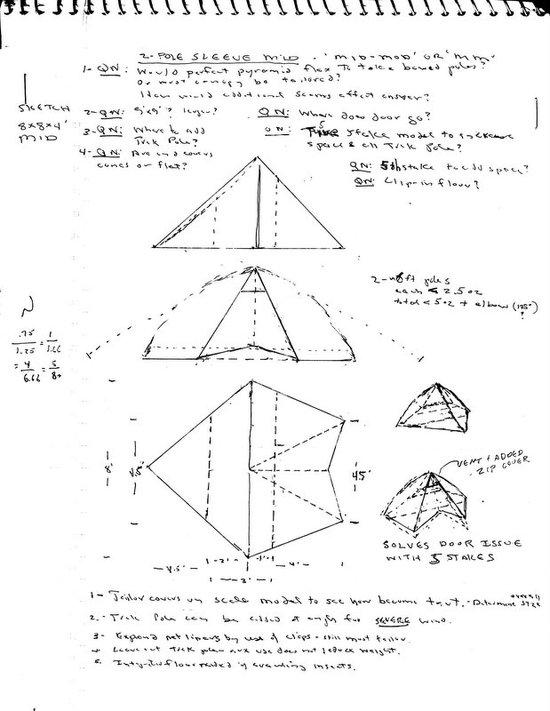 2-POLE SLEEVE MID - "MID-MOD" OR "MM"
1- QN: Would perfect pyramid flex to take bowed poles?
Or must canopy be tailored?
How would additional seams effect answer?
SKETCH
8x8x4'
MID
2- QN: 9'x9'? larger?
QN: Where does door go?
3- QN: Where to add
Trek Pole?
QN: stake model to increase
space & Trek Pole?
4- QN: Are end covers
curved or flat?
QN: 5th stake to add space?
QN: Clip-in floor?
2- poles
each < 2.5 oz
total < 5 oz + elbow (125°)
?
.75
1.25
= 1
1.66
= 4
6.66
= 5
8
8'
4.5'
VENT & ADDED
ZIP COVER
SOLVES DOOR ISSUE
WITH 5 STAKES
4.5'
2'
4'
2'
1- Tailor covers on scale model to see how become taut. - Determine overall size
2- Trek Pole can be added at angle for SEVERE wind.
3- Expand by use of clips - still must tailor.
Leave out Trek pole use does not reduce weight.
floor needed if crawling insects.